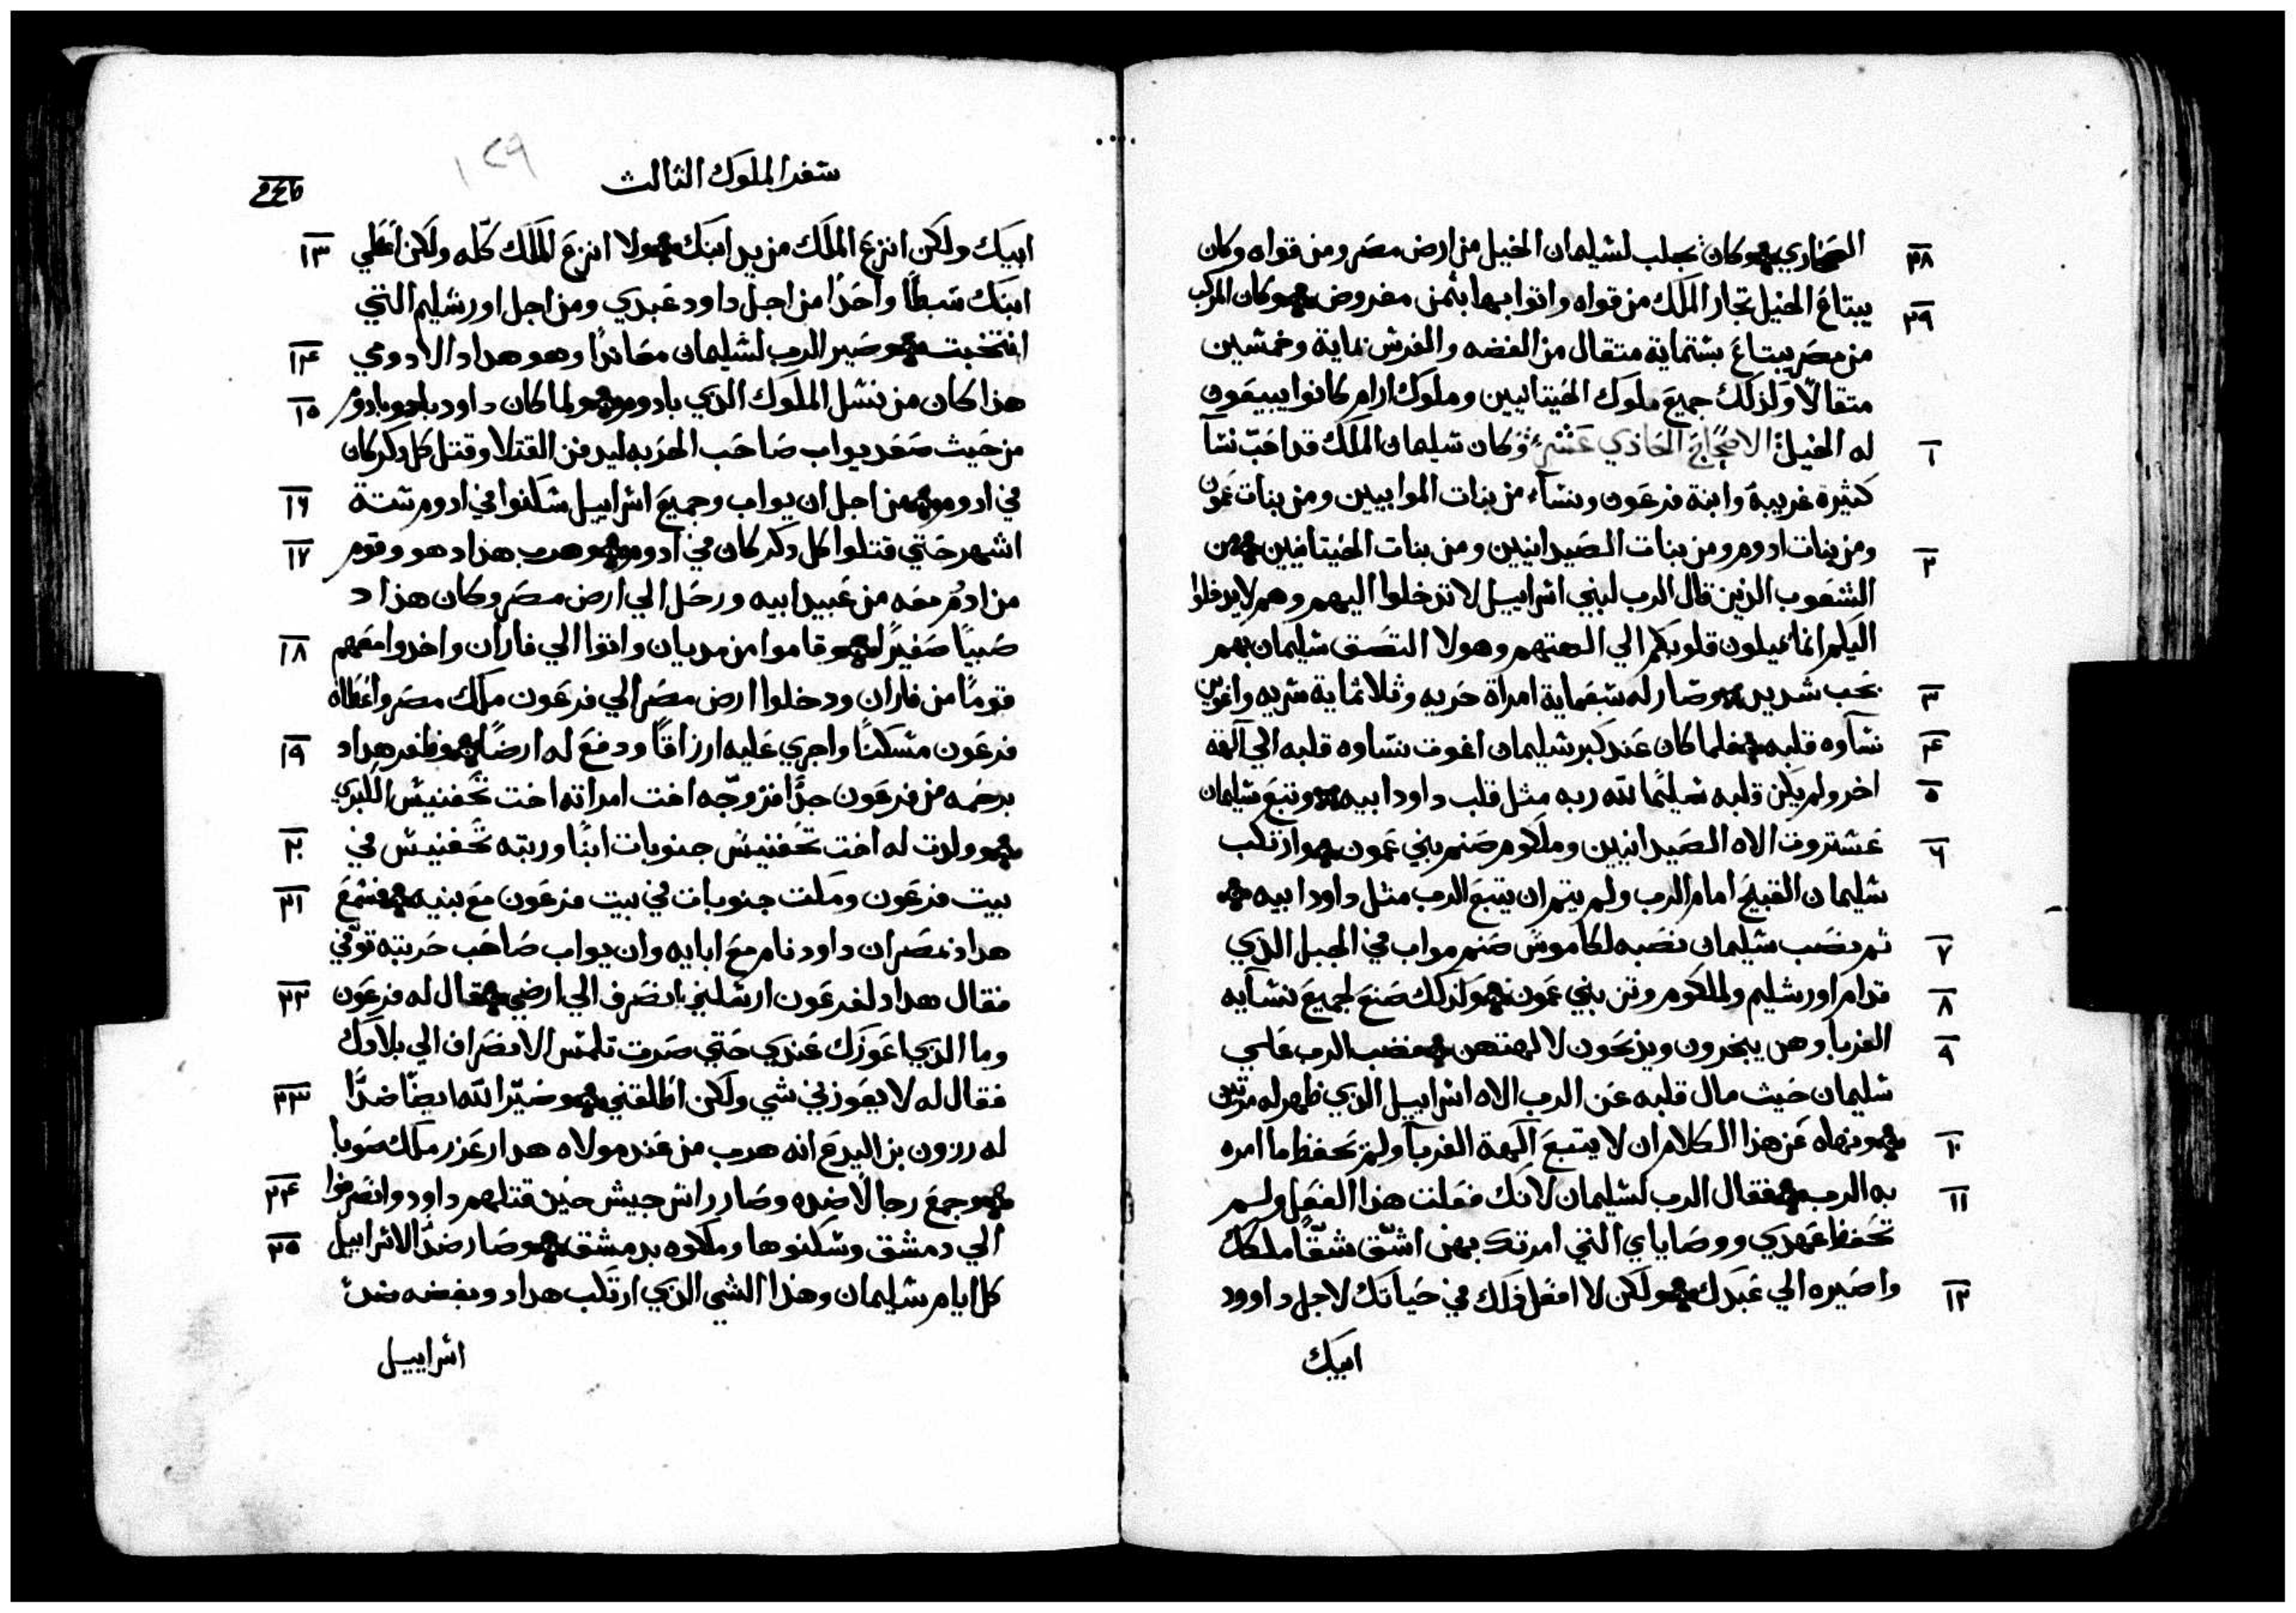 ٢٨ الصحاري وكان يجلب لشليمان الخيل من ارض مصر ومن قواه وكان
٢٩ يبتاع الخيل تجار الملك من قواه واتوا بها بثمن مفروض وكان المركب
من مصر يبتاع بستماية متقال من الفضه والفرش بماية وخمشين
متقالاً ولذلك جميع ملوك الحيتانيين وملوك ارام كانوا يبيعون
١ له الخيل الاصحاح الحادي عشر وكان شليمان الملك قد احب نشآ
كثيرة غريبة وابنة فرعون ونشآء من بنات الموابيين ومن بنات عمون
٢ ومن بنات ادوم ومن بنات الصيدانيين ومن بنات الحيتانيين من
الشعوب الذين قال الرب لبني اشراييل لا تدخلوا اليهم وهم لا يدخلوا
اليكم انما يميلون قلوبكم الي الهتهم وهولا التصق شليمان بهم
٣ بحب شديد وصار له سبعماية امراة حريه وثلاثماية شريه واغوين
٤ نشآوه قلبه فلما كان عند كبر شليمان اغوت نشاوه قلبه الي آلهة
٥ اخر ولم يكن قلبه شليمًا لله ربه مثل قلب داود ابيه وتبع شليمان
٦ عشتروت الاه الصيدانيين وملكوم صنم بني عمون وارتكب
شليمان القبيح امام الرب ولم يتم ان يتبع الرب مثل داود ابيه
٧ ثم نصب شليمان نصبه لكاموش صنم مواب في الجبل الذي
٨ قدام اورشليم ولملكوم وثن بني عمون ولذلك صنع لجميع نشآيه
٩ الغربا وهن يبخرون ويذبحون لالهتهن فغضب الرب علي
شليمان حيث مال قلبه عن الرب الاه اشراييل الذي ظهر له مرتين
١٠ ونهاه عن هذا الكلام ان لا يتبع آلهة الغربآ ولم يحفظ ما امره
١١ به الرب فقال الرب لشليمان لانك فعلت هذا الفعل ولم
تحفظ عهدي ووصاياي التي امرتك بهن اشق شقًا ملكك
١٢ واصيره الي عبدك ولكن لا افعل ذلك في حياتك لاجل داوود
ابيك
سفر الملوك الثالث
١٢٩
١٣ ابيك ولكن انزع الملك من يد ابنك ولا انزع الملك كله ولكن اعطي
ابنك شبطًا واحدًا من اجل داود عبدي ومن اجل اورشليم التي
١٤ انتخبت وصير الرب لشليمان معاندًا وهو هداد الادومي
١٥ هذا كان من نشل الملوك الذي بادوم ولما كان داود بادوم
من حيث صعد يواب صاحب الحربه ليدفن القتلا وقتل كل دكر كان
١٦ في ادوم من اجل ان يواب وجميع اشراييل شكنوا في ادوم شتة
١٧ اشهر حتي قتلوا كل دكر كان في ادوم وهرب هداد هو وقوم
من ادوم معه من عبيد ابيه ورحل الي ارض مصر وكان هداد
١٨ صبيًا صغيرًا وقاموا من مديان واتوا الي فاران واخدوا معهم
قومًا من فاران ودخلوا ارض مصر الي فرعون ملك مصر واعطاه
١٩ فرعون مشكنًا واجري عليه ارزاقًا ودفع له ارضًا وظفر هداد
برحمه من فرعون جدًا فزوجه اخت امراته اخت تحفنيش الكبري
٢٠ وولدت له اخت تحفنيش جنوبات ابنًا وربته تحفنيش في
٢١ بيت فرعون ومكت جنوبات في بيت فرعون مع بنيه فشمع
هداد بمصر ان داود نام مع ابايه وان يواب صاحب حربته توفي
٢٢ فقال هداد لفرعون ارشلني انصرف الي ارضي فقال له فرعون
وما الذي اعوزك عندي حتي صرت تلتمس الانصراف الي بلادك
٢٣ فقال له لا يعوزني شي ولكن اطلقني وصير الله ايضًا ضدًا
له رزون بن اليدع انه هرب من عند مولاه هدارعزر ملك صوبا
٢٤ وجمع رجالاً ضده وصار راش جيش حين قتلهم داود وانصرفوا
٢٥ الي دمشق وشكنوها وملكوه بدمشق وصار ضد الاشراييل
كل ايام شليمان وهذا الشي الذي ارتكب هداد وبغضه ضد
اشراييل